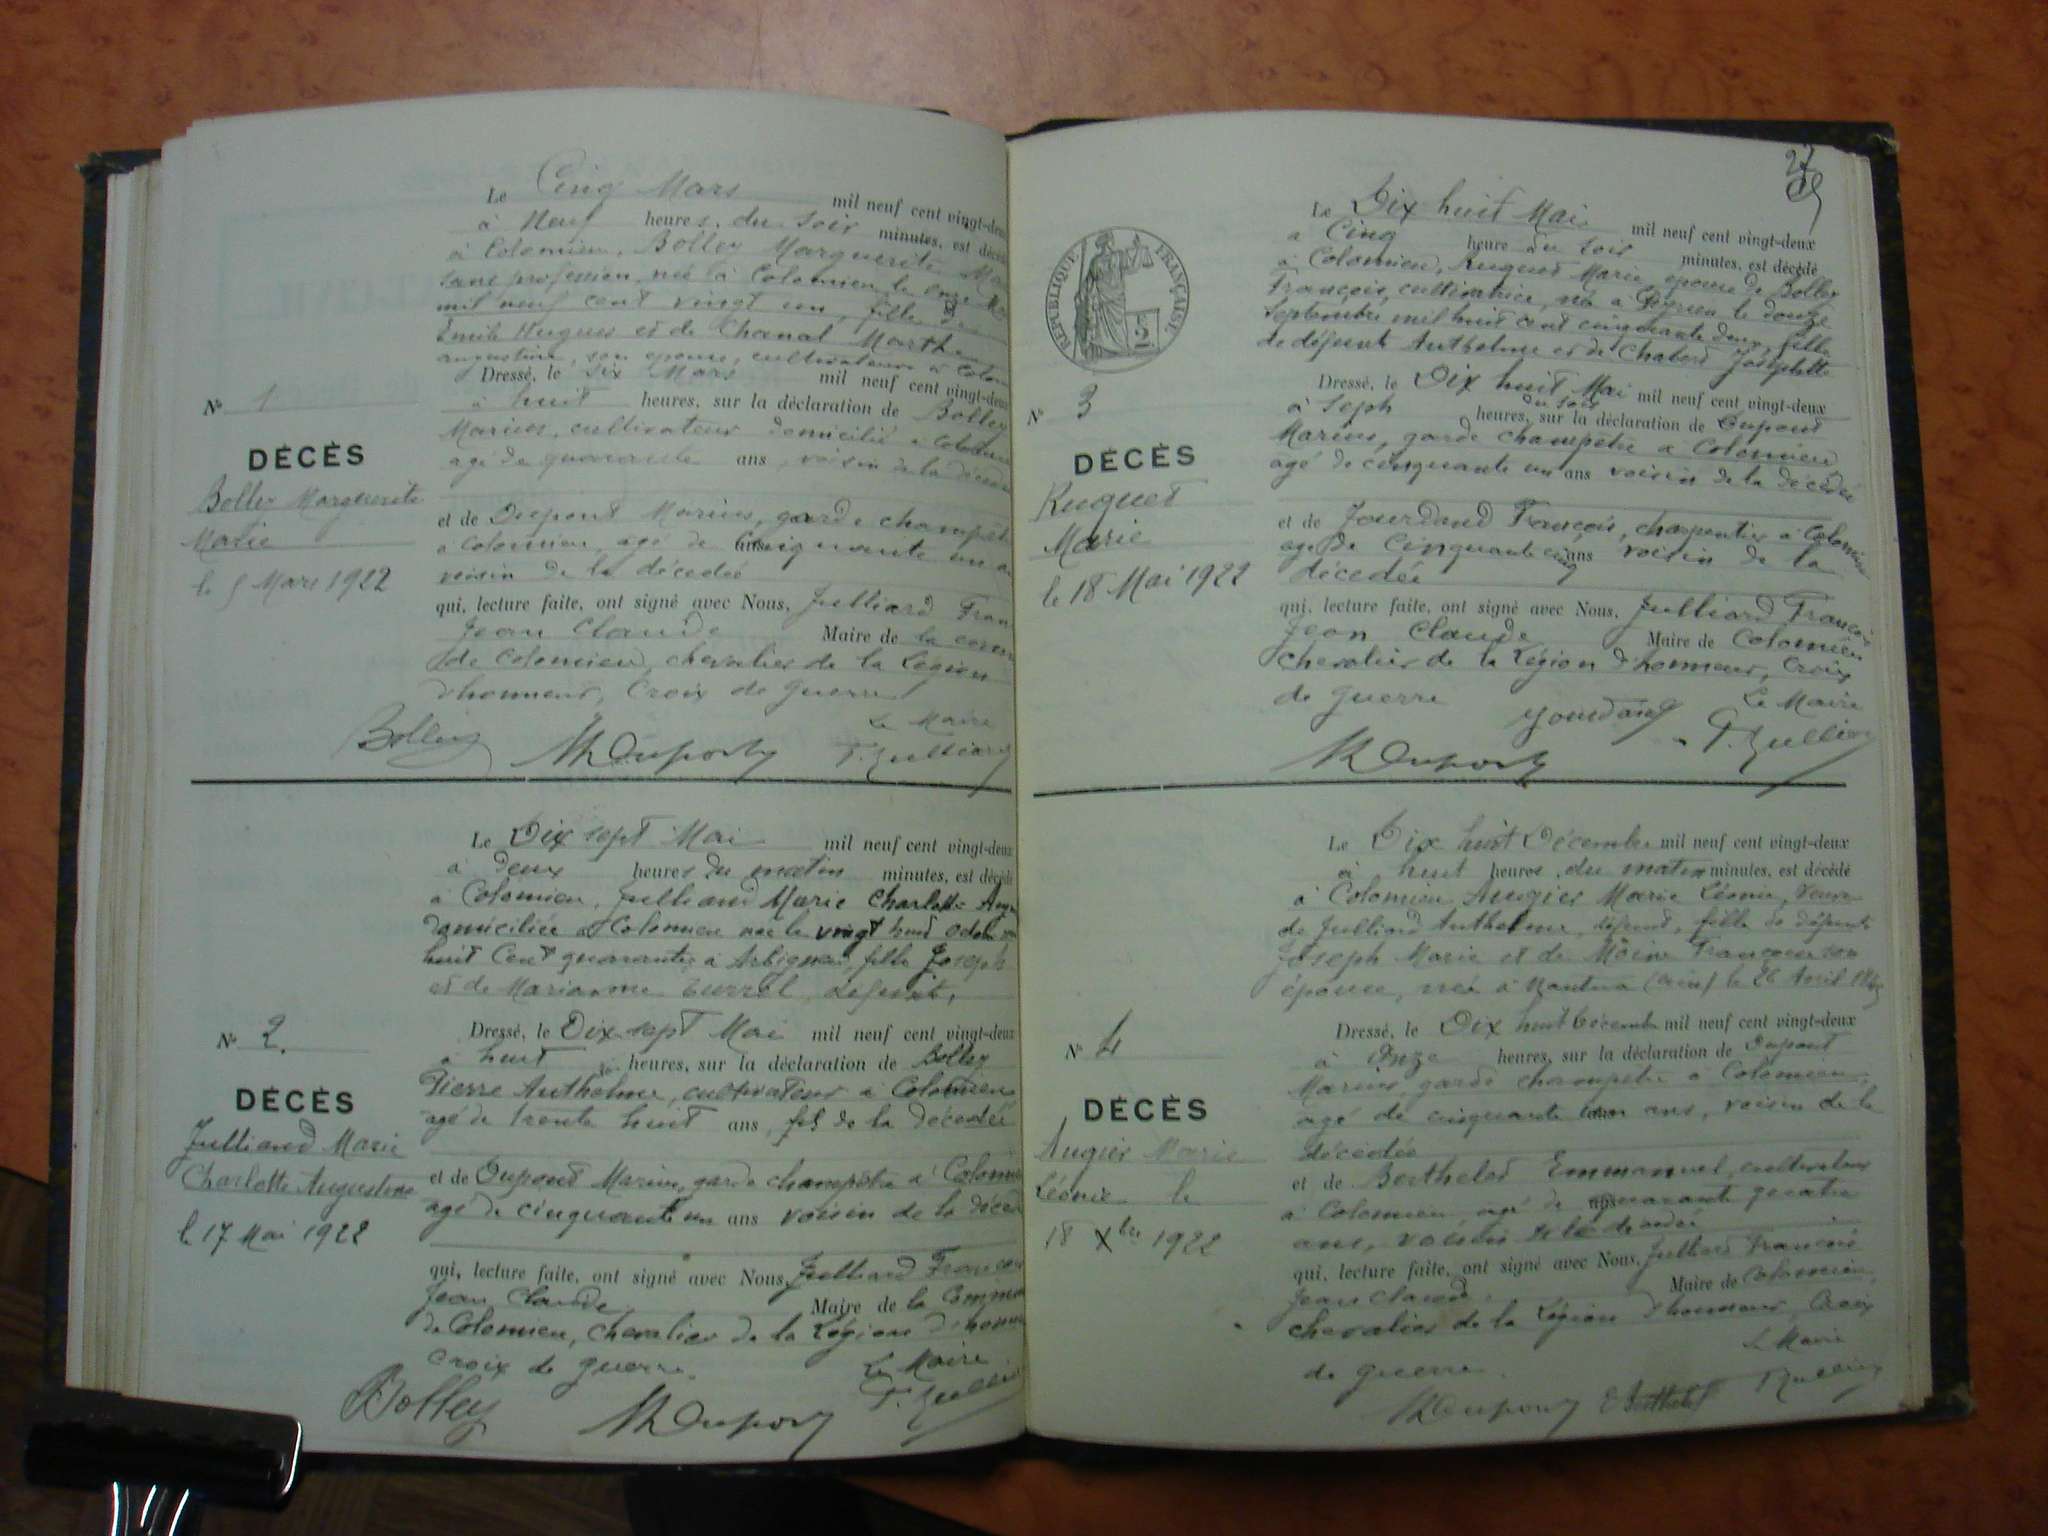 Le Cinq Mars mil neuf cent vingt-deux
à Neuf heures, du soir minutes, est décédé
à Colomieu, Bolley Marguerite
sans profession, née à Colomieu le onze
mil neuf cent vingt un, fille de
Emile Hugues et de Chanal Marthe
augustine, son épouse, cultivateurs à
Dressé, le six Mars mil neuf cent vingt-deux
à huit heures, sur la déclaration de Bolley
Marius, cultivateur domicilié à Colomieu
agé de quarante ans, voisin de la décédée
et de Dupont Marius, garde champêtre
à Colomieu, agé de cinquante un ans
voisin de la décédée
qui, lecture faite, ont signé avec Nous, Julliard
Jean Claude Maire de la
de Colomieu, chevalier de la Légion
d'honneur, Croix de Guerre
Le Maire
Bolley MDupont F. Julliard
N° 1
DÉCÈS
Bolley Marguerite
Marie
le 5 Mars 1922
Le Dix sept Mai mil neuf cent vingt-deux
à deux heures du matin minutes, est décédé
à Colomieu, Julliand Marie Charlotte
domiciliée à Colomieu née le vingt
huit Cent quarante à fille Joseph
et de Marianne
Dressé, le Dix sept Mai mil neuf cent vingt-deux
à huit heures, sur la déclaration de Bolley
Pierre Anthelme, cultivateur à Colomieu
agé de trente huit ans, fils de la décédée
et de Dupont Marius, garde champêtre à Colomieu
agé de cinquante un ans voisin de la
qui, lecture faite, ont signé avec Nous, Julliard
Jean Claude Maire de la
de Colomieu, chevalier de la Légion
Croix de guerre. Le Maire
Bolley MDupont F. Julliard
N° 2.
DÉCÈS
Julliand Marie
Charlotte Augustine
le 17 Mai 1922
27
RÉPUBLIQUE FRANÇAISE
Le Dix huit Mai mil neuf cent vingt-deux
à Cinq heure du soir minutes, est décédé
à Colomieu, Ruguet Marie, épouse de Bolley
François, cultivatrice, née à le douze
Septembre mil huit cent cinquante deux, fille
de défunt Anthelme et de Chaberd Joséphette
Dressé, le Dix huit Mai mil neuf cent vingt-deux
à Seph du soir heures, sur la déclaration de Dupont
Marius, garde champêtre à Colomieu
agé de cinquante un ans voisin de la décédée
et de Jourdand François, charpentier à Colomieu
agé de Cinquante cinq ans voisin de la
décédée
qui, lecture faite, ont signé avec Nous, Julliard François
Jean Claude Maire de Colomieu
chevalier de la Légion d'honneur, Croix
de guerre Le Maire
Jourdand F. Julliard
MDupont
N° 3
DÉCÈS
Ruguet
Marie
le 18 Mai 1922
Le Dix huit Décembre mil neuf cent vingt-deux
à huit heures, du matin minutes, est décédé
à Colomieu Augier Marie Léonie, Veuve
de Julliard Anthelme, défunt, fille de défunts
Joseph Marie et de Moine Françoise son
épouse, née à Nantua (Ain) le 26 Avril
Dressé, le Dix huit Décembre mil neuf cent vingt-deux
à Onze heures, sur la déclaration de Dupont
Marius, garde champêtre à Colomieu,
agé de cinquante un ans, voisin de la
décédée
et de Berthelet Emmanuel, cultivateur
à Colomieu, agé de quarante quatre
ans, voisin de la décédée
qui, lecture faite, ont signé avec Nous, Julliard François
Jean Claude. Maire de Colomieu,
chevalier de la Légion d'honneur, Croix
de guerre Le Maire
MDupont E Berthelet F Julliard
N° 4
DÉCÈS
Augier Marie
Léonie le
18 Xbre 1922